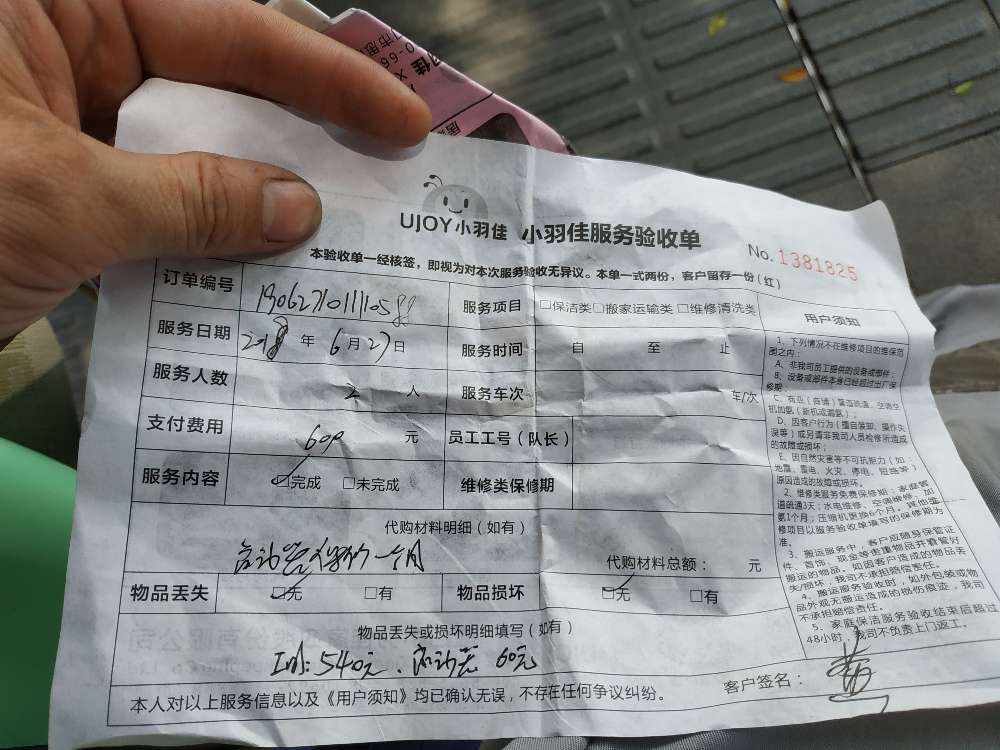 UJOY小羽佳 小羽佳服务验收单
No. 1381825
本验收单一经核签，即视为对本次服务验收无异议。本单一式两份，客户留存一份（红）
订单编号 服务项目 □保洁类□搬家运输类 □维修清洗类
服务日期 年 6 月 27 日 服务时间 自 至 止
服务人数 2 人 服务车次 车/次
支付费用 600 元 员工工号（队长）
服务内容 □完成 □未完成 维修类保修期
代购材料明细（如有）
一个月 代购材料总额： 元
物品丢失 □无 □有 物品损坏 □无 □有
物品丢失或损坏明细填写（如有）
540元、 60元
本人对以上服务信息以及《用户须知》均已确认无误，不存在任何争议纠纷。
客户签名：
用户须知
1、下列情况不在维修项目的维保范
围之内：
A、非我司员工提供的设备或部件；
B、设备或部件本身已经超过出厂保
修期；
C、商业（商铺）管道疏通、空调空
机加氨（新机或漏氨）；
D、因客户行为（擅自装卸、操作失
误等）或另请非我司人员检修所造成
的故障或损坏；
E、因自然灾害等不可抗拒力（如：
地震、雷电、火灾、停电、短路等）
原因造成的故障或损坏。
2、维修类服务免费保修期：家庭管
道疏通3天；水电维修、空调维修、加
氨1个月；压缩机更换6个月。其他维
修项目以服务验收单填写的保修期为
准。
3、搬运服务中，客户应随身保管证
件、首饰、现金等贵重物品并看管好
搬运的物品。如因客户造成的物品丢
失/损坏，我司不承担赔偿责任。
4、搬运服务验收时，如外包装或物
品外观无搬运造成的损伤痕迹，我司
不承担赔偿责任。
5、家庭保洁服务验收结束后超过
48小时，我司不负责上门返工。